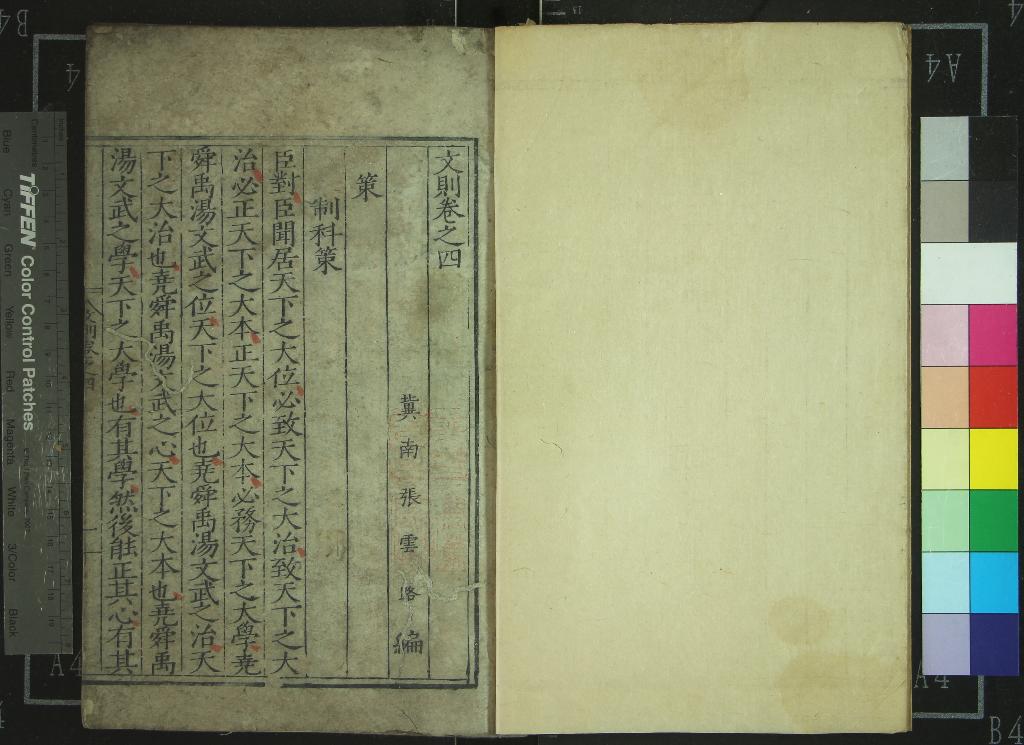 文則卷之四
冀南張雲路編
策
制科策
臣對臣聞居天下之大位必致天下之大治致天下之大
治必正天下之大本正天下之大本必務天下之大學堯
舜禹湯文武之位天下之大位也堯舜禹湯文武之治天
下之大治也堯舜禹湯文武之心天下之大本也堯舜禹
湯文武之學天下之大學也有其學然後能正其心有其
TIFFEN Color Control Patches
Centimetres
Inches
Blue
Cyan
Green
Yellow
Red
Magenta
White
3/Color
Black
A4
A4
A4
B4
B4